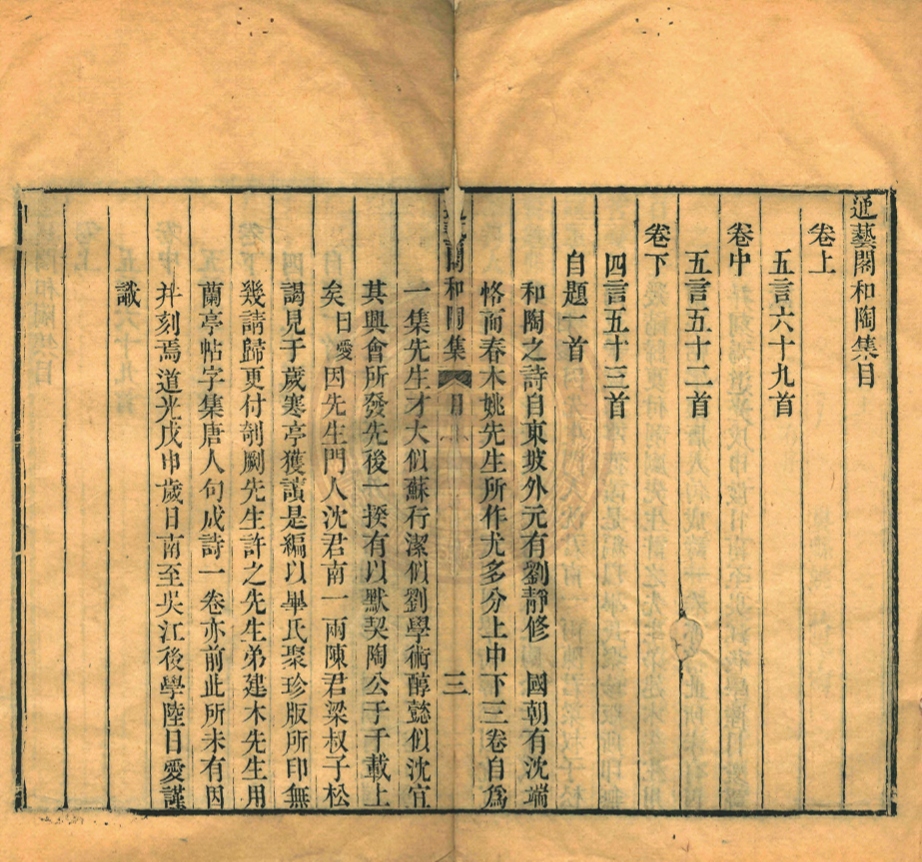 通藝閣和陶集目
卷上
五言六十九首
卷中
五言五十二首
卷下
四言五十三首
自題一首
和陶之詩自東坡外元有劉靜修 國朝有沈端
恪而春木姚先生所作尤多分上中下三卷自為
藝閣和陶集 目 三
一集先生才大似蘇行潔似劉學術醇懿似沈宜
其興會所發先後一揆有以默契陶公于千載上
矣日愛因先生門人沈君南一雨陳君梁叔子松
謁見于歲寒亭獲讀是編以畢氏聚珍版所印無
幾請歸更付剞劂先生許之先生弟建木先生用
蘭亭帖字集唐人句成詩一卷亦前此所未有因
并刻焉道光戊申歲日南至吳江後學陸日愛謹
識